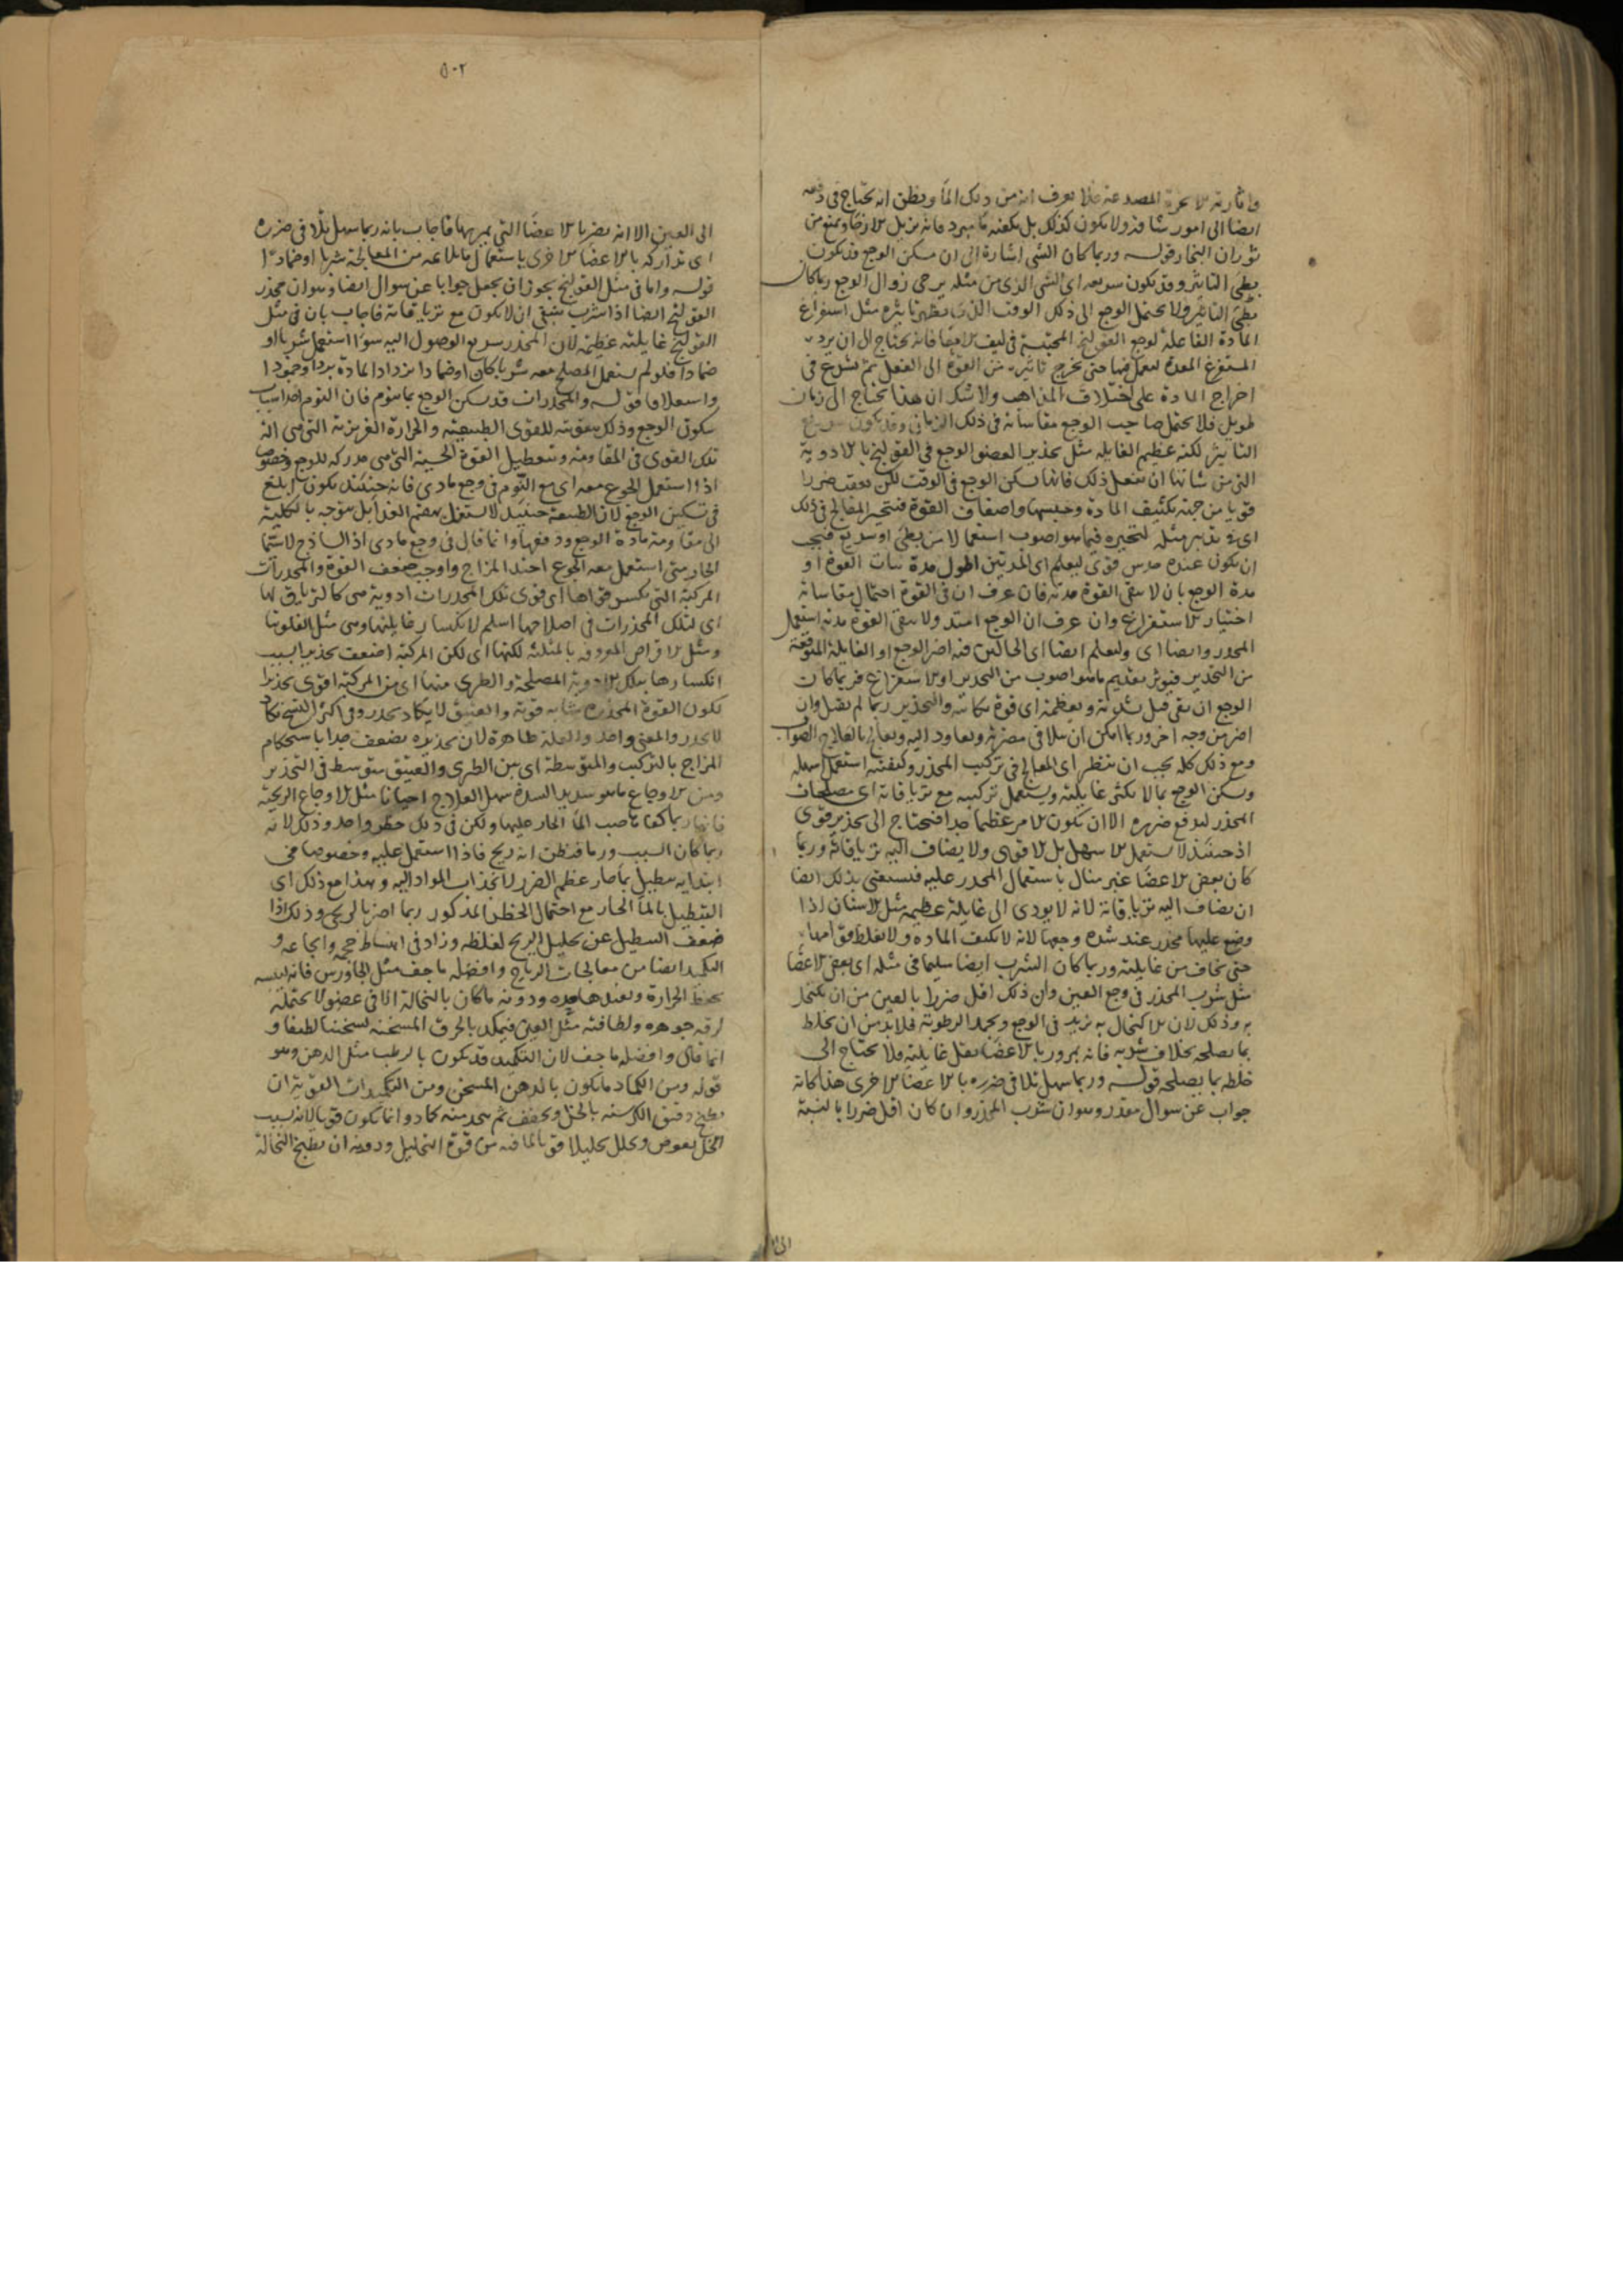 واثارته الابخرة المصدعة فلا يعرف انه من ذلك الماء ويظن انه يحتاج في دفعه
ايضا الى امور شاقة ولا يكون كذلك بل يكفيه ما يبرد فانه يزيل الاذى ويمنع من
ثوران البخار قوله وربما كان الشى اشارة الى ان مسكن الوجع قد يكون
بطئ التاثير وقد يكون سريعه اى الشى الذى من مثله يرجى زوال الوجع ربما كان
بطئ التاثير ولا يحتمل الوجع الى ذلك الوقت الذى يظهر تاثيره مثل استفراغ
المادة الفاعلة لوجع القولنج المحتبسة في ليف الامعا فانه يحتاج الى ان يرد
المستفرغ المعدة ليعمل فيها حتى يخرج تاثيره من القوة الى الفعل ثم يشرع في
اخراج المادة على اختلاف المذاهب ولا شك ان هذا يحتاج الى زمان
طويل فلا يحتمل صاحب الوجع مقاساته في ذلك الزمان وقد يكون سريع
التاثير لكنه عظيم الغايلة مثل تخدير العضو الوجع في القولنج بالادوية
التي من شانها ان تفعل ذلك فانها يسكن الوجع في الوقت لكن يعقب ضررا
قويا من جهة تكثيف المادة وحبسها واضعاف القوة فيتحير المعالج في ذلك
اى في تدبير مثله لتحيره فيما هو اصوب استعمالا من بطئ او سريع فيجب
ان يكون عنده حدس قوى ليعلم اى المدتين اطول مدة ثبات القوة او
مدة الوجع بان لا يبقى القوة مدته فان عرف ان في القوة احتمال مقاساته
اختيار الاستفراغ وان عرف ان الوجع امتد ولا يبقى القوة مدته استعمل
المخدر وايضا اى وليعلم ايضا اى الحالين فيه اضر الوجع او الغايلة المتوقعة
من التخدير فيوثر تقديم ما هو اصوب من التخدير او الاستفراغ فربما كان
الوجع ان بقى قتل بشدته وبعظمه اى قوة نكايته والتخدير ربما لم يقتل وان
اضر من وجه اخر وربما امكن ان يتلافى مضرته ويعاود اليه ويعالج بالعلاج الصواب
ومع ذلك كله يجب ان ينظر اى المعالج في تركيب المخدر وكيفيته استعمل اسهله
ويسكن الوجع بما لا يكثر غايلته ويستعمل تركيبه مع ترياقاته اى مصلحات
المخدر ليدفع ضرره الا ان يكون الامر عظيما جدا فيحتاج الى تخدير قوى
اذ حينئذ لا يستعمل الاسهل بل الاقوى ولا يضاف اليه ترياقاته وربما
كان بعض الاعضا غير مبال باستعمال المخدر عليه فيستغنى بذلك ايضا
ان يضاف اليه ترياقاته لانه لا يودى الى غايلة عظيمة مثل الاسنان اذا
وضع عليها مخدر عند شدة وجعها لانه لا يكثف المادة ولا يغلظ قوامها
حتى يخاف من غايلته وربما كان الشرب ايضا سليما في مثله اى بعض الاعضا
مثل شرب المخدر في وجع العين وان ذلك اقل ضررا بالعين من ان يكتحل
به وذلك لان الاكتحال به يزيد في الوجع ويجمد الرطوبة فلا بد من ان يخلط
بما يصلحه بخلاف شربه فانه بمرور بالاعضا يقل غايلته فلا يحتاج الى
خلطه بما يصلحه قوله وربما سهل تلافى ضرره بالاعضا الاخرى هذا كانه
جواب عن سوال مقدر وهو ان شرب المخدر وان كان اقل ضررا بالنسبة
٥٠٢
الى العين الا انه يضر بالاعضا التي يمر بها فاجاب بانه ربما سهل تلافى ضرره
اى تداركه بالاعضا الاخرى باستعمال ما يلايمه من المعالجة شربا او ضمادا
قوله واما في مثل القولنج يجوز ان يجعل جوابا عن سوال ايضا وهو ان مخدر
القولنج ايضا اذا شرب ينبغي ان لا يكون مع ترياقاته فاجاب بان في مثل
القولنج غايلته عظيمة لان المخدر سريع الوصول اليه سوا استعمل شربا او
ضمادا فلو لم يستعمل المصلح معه شربا كان او ضمادا يزداد المادة بردا وجمودا
واستغلاقا قوله والمخدرات قد يسكن الوجع بما ينوم فان النوم احد اسباب
سكون الوجع وذلك بتقويته للقوى الطبيعية والحرارة الغريزية التي هي الة
تلك القوى في المقاومة وتعطيل القوة الحسية التي هي مدركه للوجع وخصوصا
اذا استعمل الجوع معه اى مع النوم في وجع مادى فانه حينئذ يكون ابلغ
في تسكين الوجع لان الطبيعة حينئذ لا يشتغل بهضم الغذا بل يتوجه بالكلية
الى مقاومة مادة الوجع ودفعها وانما قال في وجع مادى اذ الساذج لا سيما
الحار متى استعمل معه الجوع احتد المزاج واوجب ضعف القوة والمخدرات
المركبة التي يكسر قواها اى قوى تلك المخدرات ادوية هي كالترياق لها
اى لتلك المخدرات في اصلاحها اسلم لانكسار غايلتها وهى مثل الفلونيا
ومثل الاقراص المعروفة بالمثلثة لكنها اى لكن المركبة اضعف تخديرا لسبب
انكسارها بتلك الادوية المصلحة والطرى منها اى من المركبة اقوى تخديرا
لكون القوة المخدرة شابة قوية والعتيق لا يكاد يخدر وفى اكثر النسخ يكاد
لا يخدر والمعنى واحد والعلة ظاهرة لان تخديره يضعف جدا باستحكام
المزاج بالتركيب والمتوسطة اى بين الطرى والعتيق متوسط في التخدير
ومن الاوجاع ما هو شديد الشدة سهل العلاج احيانا مثل الاوجاع الريحية
فانها ربما كفاها صب الماء الحار عليها ولكن في ذلك خطر واحد وذلك لانه
ربما كان السبب ورما فظن انه ريح فاذا استعمل عليه وخصوصا في
ابتدايه تنطيل بماء حار عظم الضرر لانجذاب المواد اليه وهذا مع ذلك اى
التنطيل بالماء الحار مع احتمال الخطر المذكور ربما اضر بالريحى وذلك اذا
ضعف التنطيل عن تحليل الريح لغلظه وزاد في انبساط حجمه وايجاعه و
التكميد ايضا من معالجات الرياح وافضله ما خف مثل الجاورس فانه ليبسه
يحفظ الحرارة ودونه ما كان بالنخالة الا في عضو لا يحتمله
لرقة جوهره ولطافته مثل العين فيكمد بالخرق المسخنة تسخينا لطيفا و
انما قال وافضله ما خف لان التكميد قد يكون بالرطب مثل الدهن وهو
قوله ومن الكماد ما يكون بالدهن المسخن ومن التكميدات القوية ان
يطبخ دقيق الكرسنة بالخل ويجفف ثم يتخذ منه كماد وانما يكون قويا لانه بسبب
الخل يغوص ويحلل تحليلا قويا لما فيه من قوة التحليل ودونه ان يطبخ النخالة